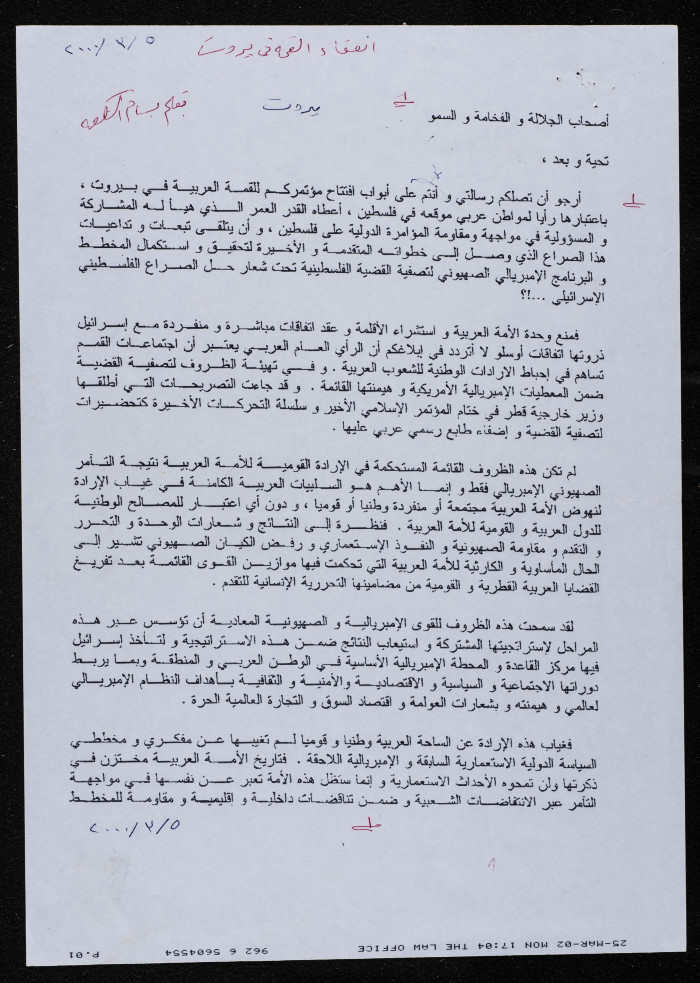 ٢٠٠٠/٣/٥ انعقاد القمة في بيروت
أصحاب الجلالة و الفخامة و السمو بيروت بقلم بسام
تحية و بعد ،
أرجو أن تصلكم رسالتي و أنتم على أبواب افتتاح مؤتمركم للقمة العربية في بيروت ،
باعتبارها رأيا لمواطن عربي موقعه في فلسطين ، أعطاه القدر العمر الذي هيأ له المشاركة
و المسؤولية في مواجهة ومقاومة المؤامرة الدولية على فلسطين ، و أن يتلقى تبعات و تداعيات
هذا الصراع الذي وصل إلى خطواته المتقدمة و الأخيرة لتحقيق و استكمال المخطط
و البرنامج الإمبريالي الصهيوني لتصفية القضية الفلسطينية تحت شعار حل الصراع الفلسطيني
الإسرائيلي ...!؟
فمنع وحدة الأمة العربية و استشراء الأقلمة و عقد اتفاقات مباشرة و منفردة مع إسرائيل
ذروتها اتفاقات أوسلو لا أتردد في إبلاغكم أن الرأي العام العربي يعتبر أن اجتماعات القمم
تساهم في إحباط الارادات الوطنية للشعوب العربية . و في تهيئة الظروف لتصفية القضية
ضمن المعطيات الإمبريالية الأمريكية و هيمنتها القائمة . و قد جاءت التصريحات التي أطلقها
وزير خارجية قطر في ختام المؤتمر الإسلامي الأخير و سلسلة التحركات الأخيرة كتحضيرات
لتصفية القضية و إضفاء طابع رسمي عربي عليها .
لم تكن هذه الظروف القائمة المستحكمة في الإرادة القومية للأمة العربية نتيجة التآمر
الصهيوني الإمبريالي فقط و إنما الأهم هو السلبيات العربية الكامنة في غياب الإرادة
لنهوض الأمة العربية مجتمعة أو منفردة وطنيا أو قوميا ، و دون أي اعتبار للمصالح الوطنية
للدول العربية و القومية للأمة العربية . فنظرة إلى النتائج و شعارات الوحدة و التحرر
و التقدم و مقاومة الصهيونية و النفوذ الإستعماري و رفض الكيان الصهيوني تشير إلى
الحال المأساوية و الكارثية للأمة العربية التي تحكمت فيها موازين القوى القائمة بعد تفريغ
القضايا العربية القطرية و القومية من مضامينها التحررية الإنسانية للتقدم .
لقد سمحت هذه الظروف للقوى الإمبريالية و الصهيونية المعادية أن تؤسس عبر هذه
المراحل لإستراتجيتها المشتركة و استيعاب النتائج ضمن هذه الاستراتيجية و لتأخذ إسرائيل
فيها مركز القاعدة و المحطة الإمبريالية الأساسية في الوطن العربي و المنطقة وبما يربط
دوراتها الاجتماعية و السياسية و الاقتصادية والأمنية و الثقافية بأهداف النظام الإمبريالي
لعالمي و هيمنته و بشعارات العولمة و اقتصاد السوق و التجارة العالمية الحرة .
فغياب هذه الإرادة عن الساحة العربية وطنيا و قوميا لم تغيبها عن مفكري و مخططي
السياسة الدولية الاستعمارية السابقة و الإمبريالية اللاحقة . فتاريخ الأمة العربية مختزن في
ذكرتها ولن تمحوه الأحداث الاستعمارية و إنما ستظل هذه الأمة تعبر عن نفسها في مواجهة
التآمر عبر الانتفاضات الشعبية و ضمن تناقضات داخلية و إقليمية و مقاومة للمخطط
٢٠٠٠/٣/٥
25-MAR-02 MON 17:04 THE LAW OFFICE 962 6 5604554 P.01